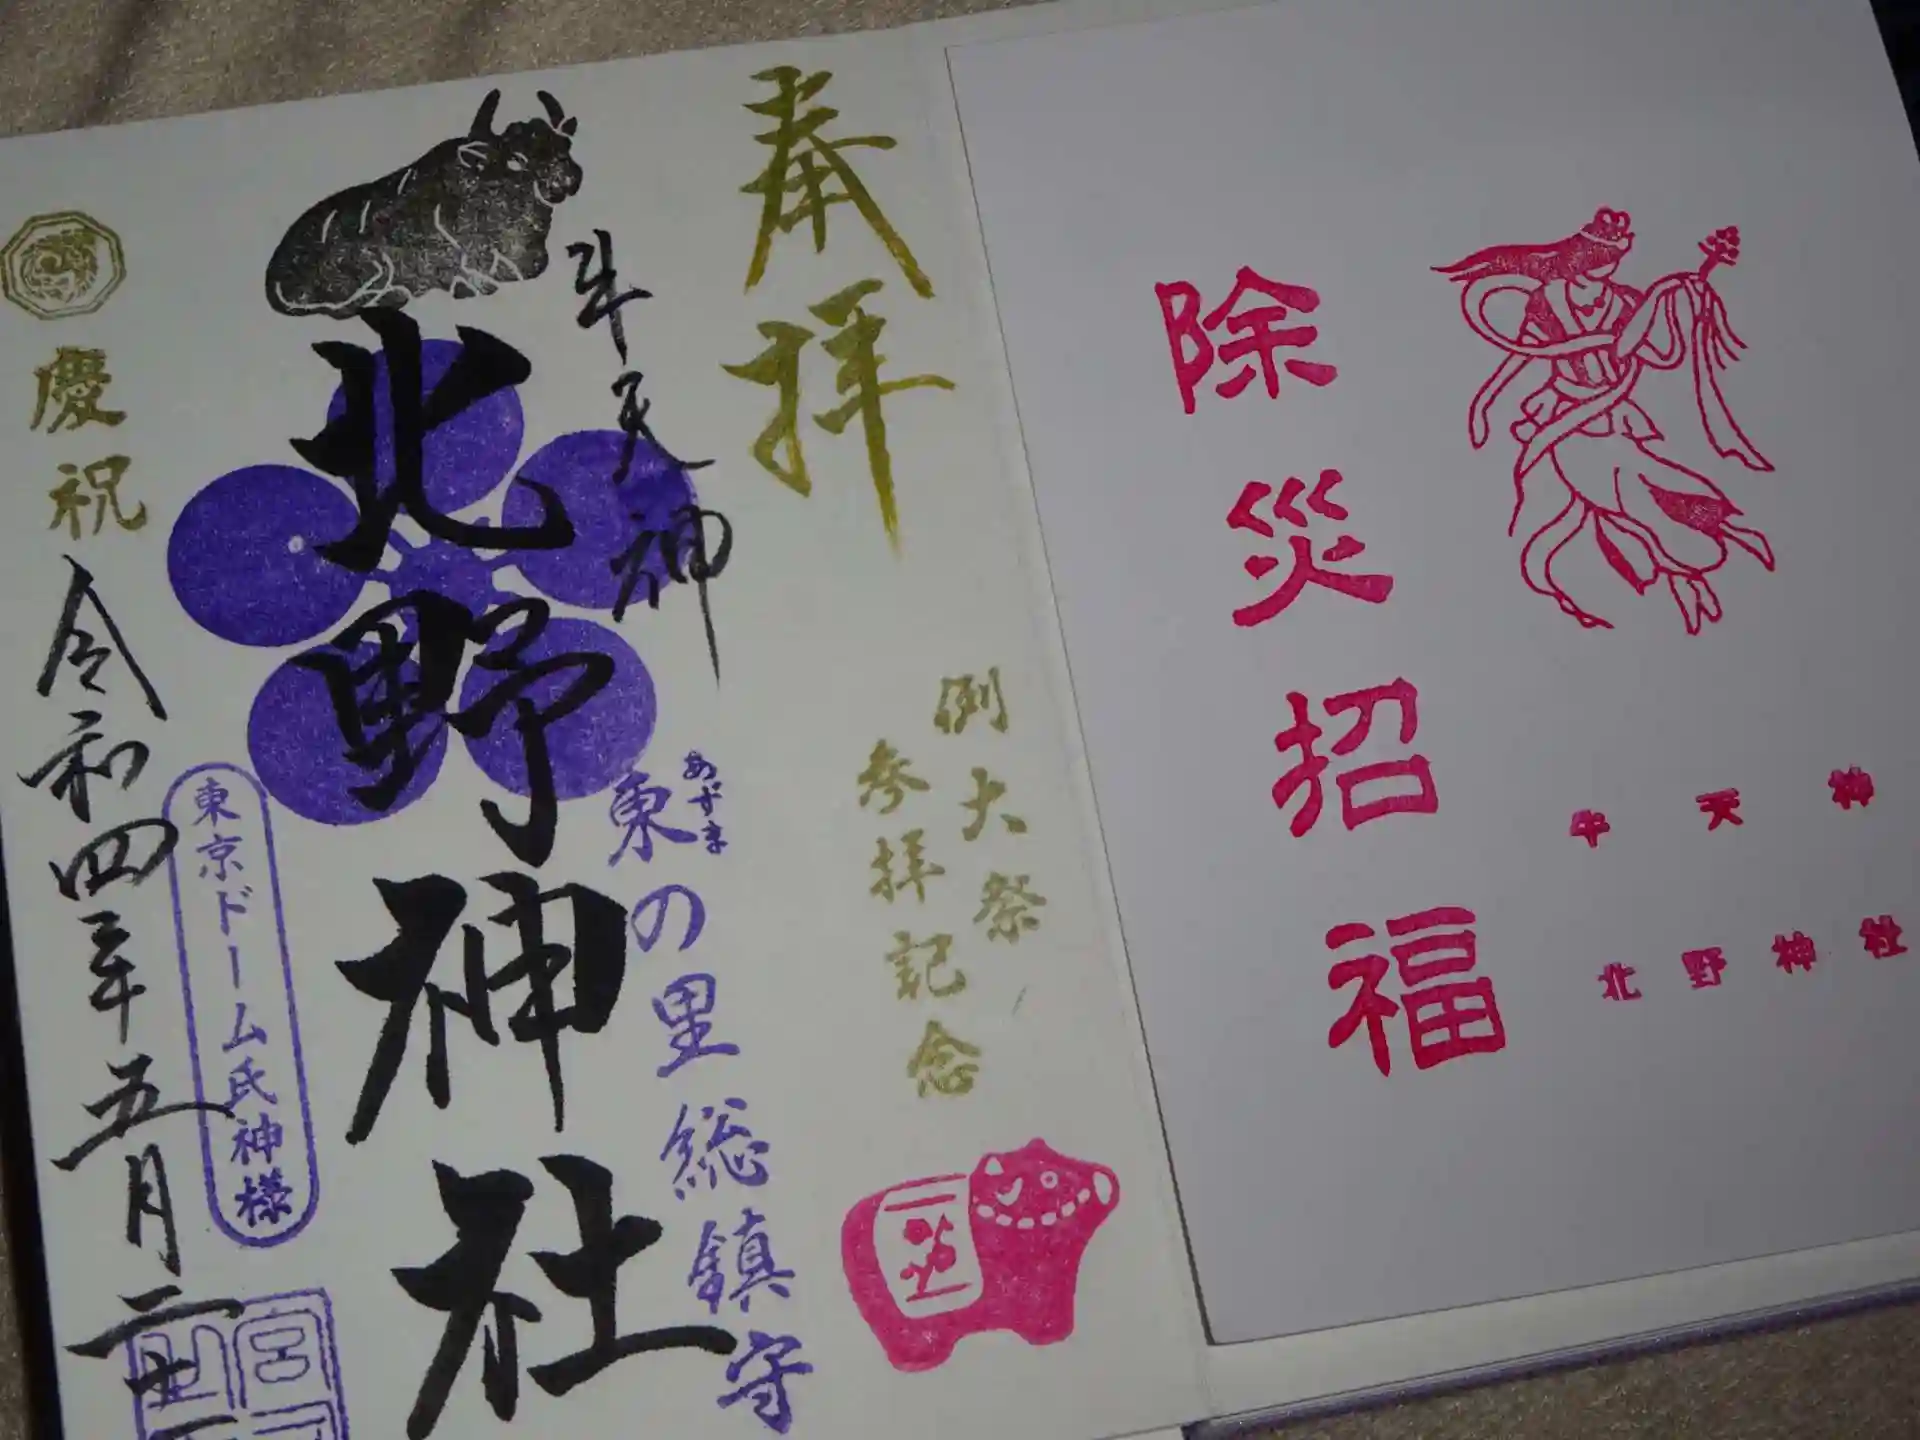 除災招福
牛天神
北野神社
奉拝
例大祭
参拝記念
牛天神
あずま
東の里総鎮守
北野神社
東京ドーム氏神様
慶祝
令和四年五月二十